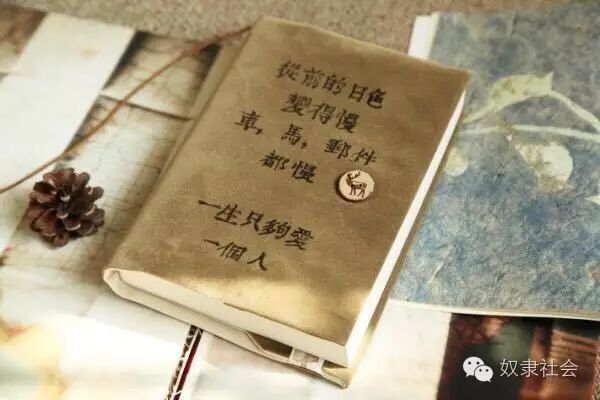 從前的日色
變得慢
車,馬,郵件
都慢
一生只夠愛
一個人
奴隶社会